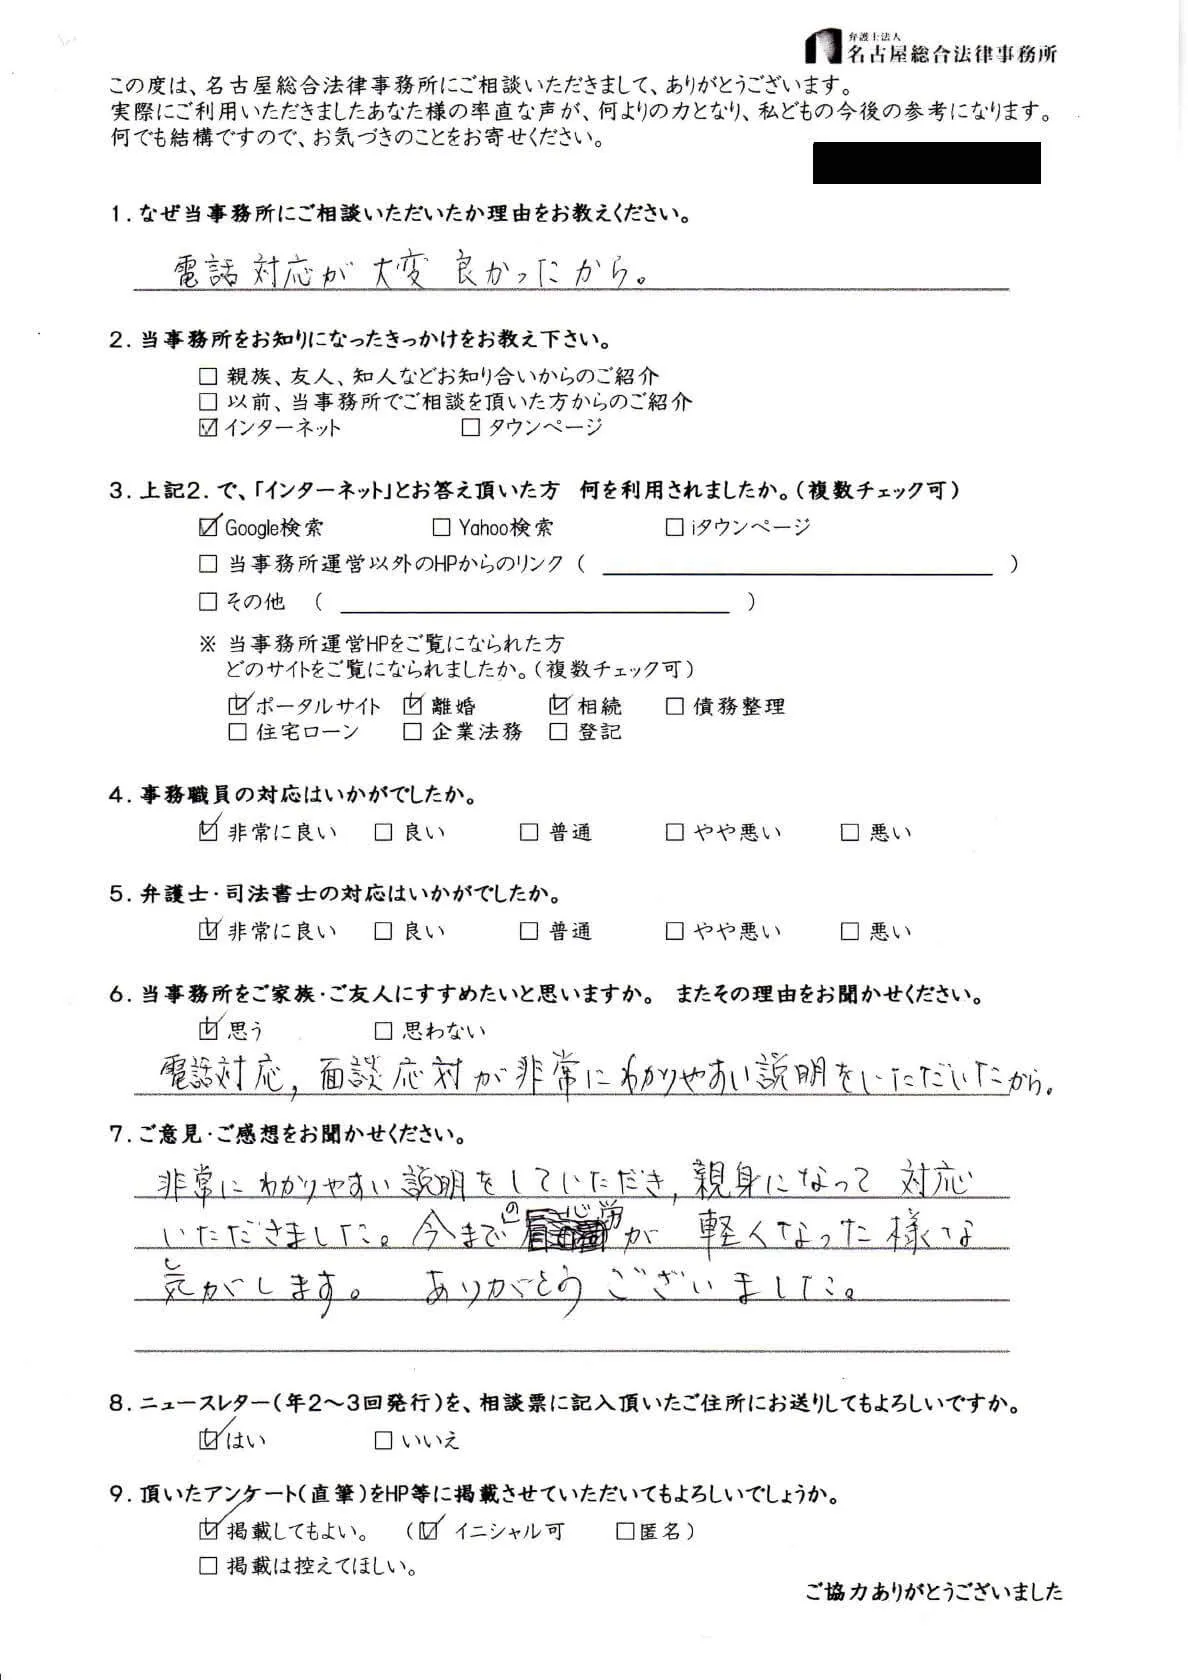 弁護士法人
名古屋総合法律事務所
この度は、名古屋総合法律事務所にご相談いただきまして、ありがとうございます。
実際にご利用いただきましたあなた様の率直な声が、何よりの力となり、私どもの今後の参考になります。
何でも結構ですので、お気づきのことをお寄せください。
1．なぜ当事務所にご相談いただいたか理由をお教えください。
電話対応が大変良かったから。
2．当事務所をお知りになったきっかけをお教え下さい。
□ 親族、友人、知人などお知り合いからのご紹介
□ 以前、当事務所でご相談を頂いた方からのご紹介
☑ インターネット □ タウンページ
3．上記2．で、「インターネット」とお答え頂いた方 何を利用されましたか。（複数チェック可）
☑ Google検索 □ Yahoo検索 □ iタウンページ
□ 当事務所運営以外のHPからのリンク（ ）
□ その他 （ ）
※ 当事務所運営HPをご覧になられた方
どのサイトをご覧になられましたか。（複数チェック可）
☑ ポータルサイト ☑ 離婚 ☑ 相続 □ 債務整理
□ 住宅ローン □ 企業法務 □ 登記
4．事務職員の対応はいかがでしたか。
☑ 非常に良い □ 良い □ 普通 □ やや悪い □ 悪い
5．弁護士・司法書士の対応はいかがでしたか。
☑ 非常に良い □ 良い □ 普通 □ やや悪い □ 悪い
6．当事務所をご家族・ご友人にすすめたいと思いますか。 またその理由をお聞かせください。
☑ 思う □ 思わない
電話対応，面談応対が非常にわかりやすい説明をいただいたから。
7．ご意見・ご感想をお聞かせください。
非常にわかりやすい説明をしていただき，親身になって対応
いただきました。今までの心労が軽くなった様な
気がします。 ありがとうございました。
8．ニュースレター（年2～3回発行）を、相談票に記入頂いたご住所にお送りしてもよろしいですか。
☑ はい □ いいえ
9．頂いたアンケート（直筆）をHP等に掲載させていただいてもよろしいでしょうか。
☑ 掲載してもよい。 （☑ イニシャル可 □匿名）
□ 掲載は控えてほしい。
ご協力ありがとうございました